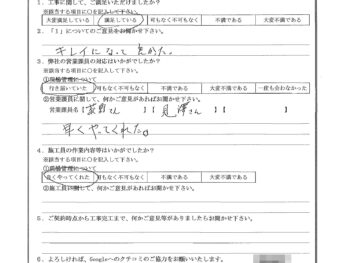 1．工事に関して、ご満足いただけましたか？
※該当する項目に○を記入して下さい。
大変満足している 満足している 可もなく不可もなく 不満である 大変不満である
2．「1」についてのご意見をお聞かせ下さい。
キレイになって良かった。
3．弊社の営業課員の対応はいかがでしたか？
※該当する項目に○を記入して下さい。
①現場管理について
行き届いていた 可もなく不可もなく 不満である 大変不満である 一度も会わなかった
②営業課員に関して、何かご意見があればお聞かせ下さい。
営業課員名【 さん 】【 さん 】【 】
早くやってくれた。
4．施工員の作業内容等はいかがでしたか？
※該当する項目に○を記入して下さい。
①現場管理について
良くやってくれた 可もなく不可もなく 不満である 大変不満である
②施工員に関して、何かご意見があればお聞かせ下さい。
5．ご契約時点から工事完工まで、何かご意見等がありましたらお聞かせ下さい。
6．よろしければ、Googleへのクチコミのご協力をお願いいたします。